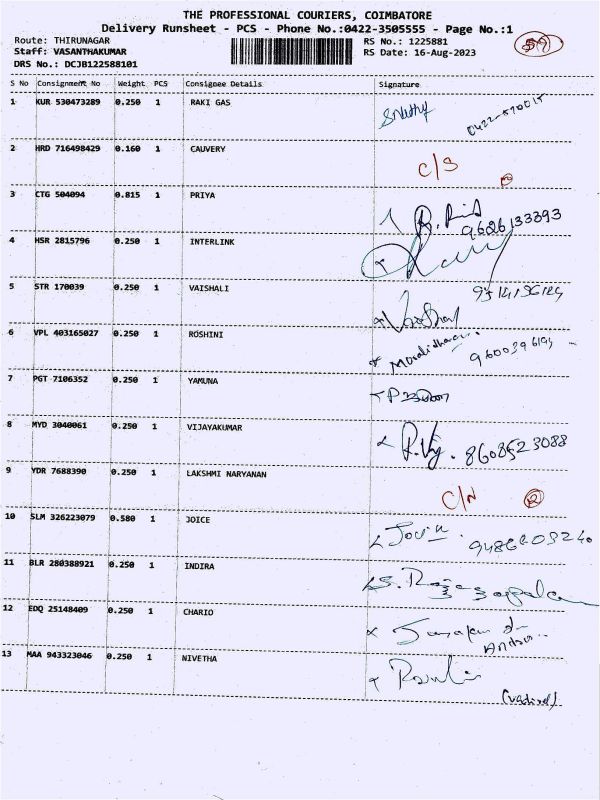 THE PROFESSIONAL COURIERS, COIMBATORE
Delivery Runsheet - PCS - Phone No.:0422-3505555 - Page No.:1
Route: THIRUNAGAR
RS No.: 1225881
Staff: VASANTHAKUMAR
RS Date: 16-Aug-2023
DRS No.: DCJB122588101
S No Consignment No Weight PCS Consignee Details Signature
1 KUR 530473289 0.250 1 RAKI GAS
2 HRD 716498429 0.160 1 CAUVERY C/S
3 CTG 504094 0.815 1 PRIYA 9626133393
4 HSR 2815796 0.250 1 INTERLINK
5 STR 170039 0.250 1 VAISHALI
6 VPL 403165027 0.250 1 ROSHINI
7 PGT 7106352 0.250 1 YAMUNA
8 MYD 3040061 0.250 1 VIJAYAKUMAR 8608523088
9 YDR 7688390 0.250 1 LAKSHMI NARYANAN C/N
10 SLM 326223079 0.580 1 JOICE
11 BLR 280388921 0.250 1 INDIRA
12 EDQ 25148409 0.250 1 CHARIO
13 MAA 943323046 0.250 1 NIVETHA